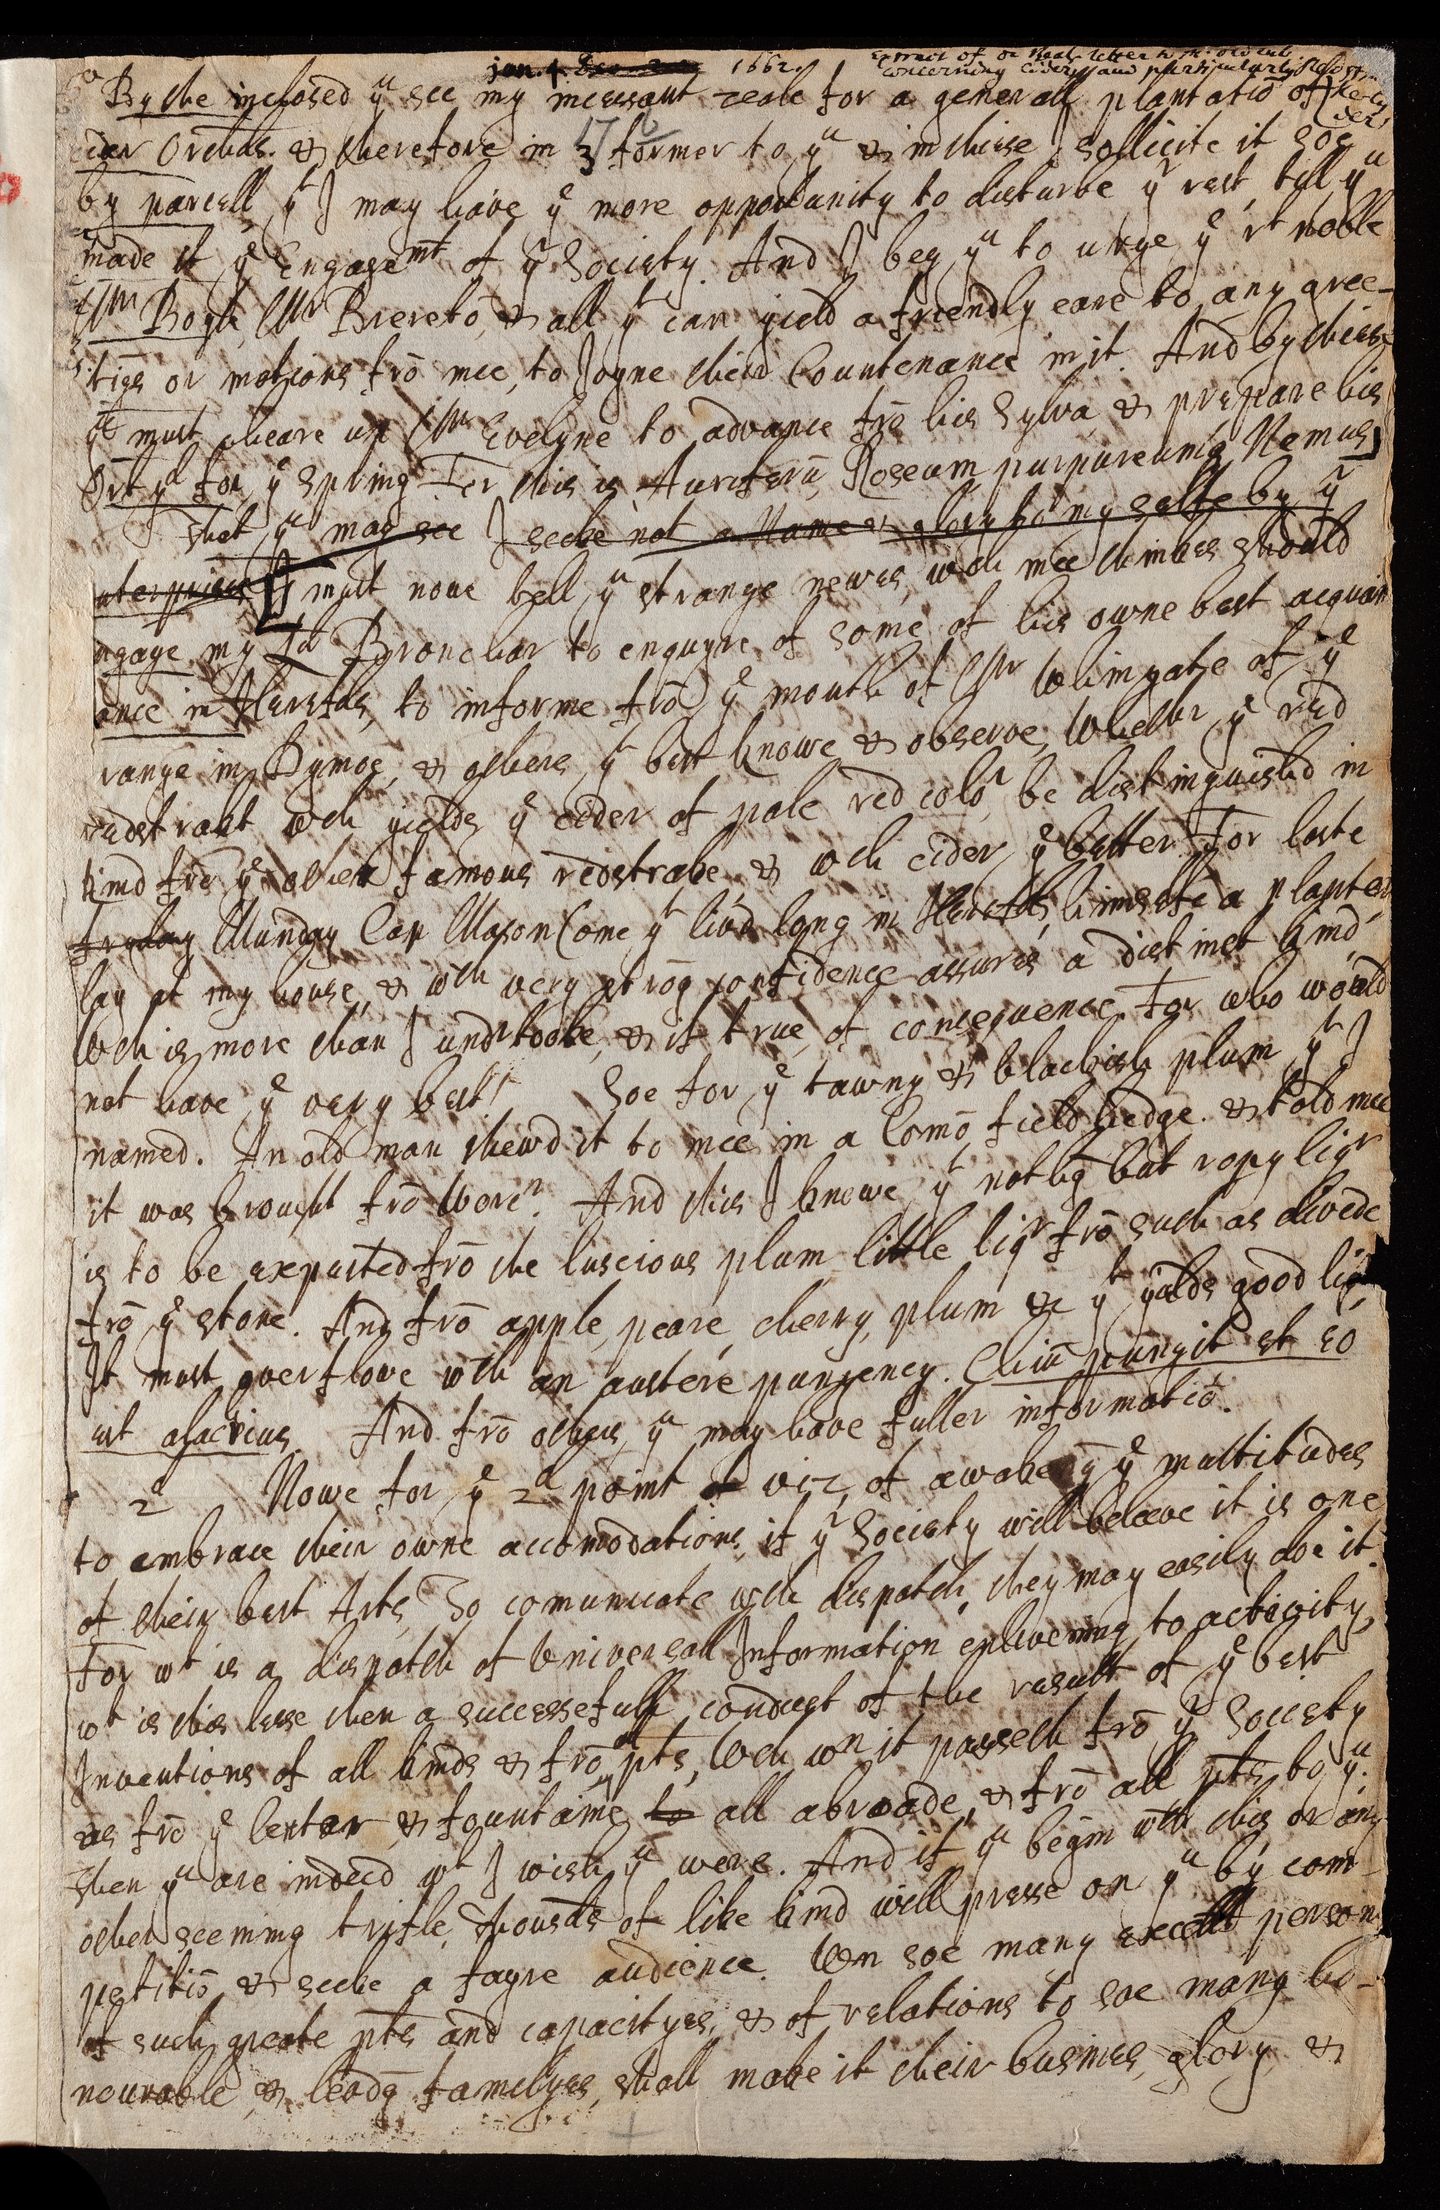 Jan. 4. 1662.
Extract of letter
concerning Cider, and particularly Redstr
By the inclosed yu see my incessant zeale for a generall plantatiō of
cider Orchds. & therefore in 3 former to yu & in these I sollicite it soe
by parcell, yt I may have ye more opportunity to disturbe yr rest, till yu
made it ye Engagemt of yr Society. And I beg yu to urge ye rt noble
Mr Boyle, Mr Breretō, & all yt can yield a friendly eare to any gree-
tigs or motions frō mee, to Joyne their Countenance in it. And by these
yu must cheare up Mr Evelyne to advance frō his Sylva, & prepare his
Ortyd for ye Spring. For this is Auriferū, Roseum, purpureumq Nemus,
That yu may see I seeke not a Name & glory to my selfe by ys
nterprise I must nowe tell yu strange newes, wch mee thinkes should
ngage my Ld Bronchar to enquyre of some of his owne best acquain
ance in Herefds, to informe frō ye mouth of Mr Whingate of ye
range in Dymoc, & others yt best knowe & observe, whethr ye red
redstrake wch yields ye cider of pale red colōr be distinguished in
kind frō ye other famous redstrake & wch cider ye better. For laste
fryday Munday Cap Mason (one yt livd long in Herefds, himselfe a planter
lay at my house, & wth very strōg confidence assures a distinct kind,
Wch is more than I undrtooke, & if true, of consequence. For who would
not have ye very best? Soe for ye tawny & blackish plum yt I
named. An old man shewd it to mee in a Comō field hedge. & told mee
it was brought frō Worcr. And this I knowe yt nothg but ropy liqr
is to be expected frō the luscious plum little liqr frō such as divide
frō ye stone. And frō apple, peare, cherry, plum &c yt yields good liqr
It must overflowe wth an austere pungency. pungit et eo
est alacrius. And frō others yu may have fuller informatiō.
2d Nowe for ye 2d point viz, of awakeng ye multitudes
to embrace their owne accomodations, if yr Society will beleeve it is one
of their best Arts, So comunicate wth dispatch, they may easily doe it.
For wt is a dispatch of Universall Information enlivening to activity,
wt is this lesse then a successefull conduct of the result of ye best
Inventions of all kinds & frō all pts, Wch wn it passeth frō yr Society
as frō ye Center & fountaine to all abroade, & frō all pts to yu.
then yu are indeed wt I wish yu were. And if yu begin wth this or any
other seeming trifle, thousds of like kind will presse on yu by com-
petitiō & seeke a fayre audience. Wn soe many excellt persons
of such greate pts and capacityes, & of relations to soe many ho-
nourable, & leadg famelyes, shall make it their busines, glory, &